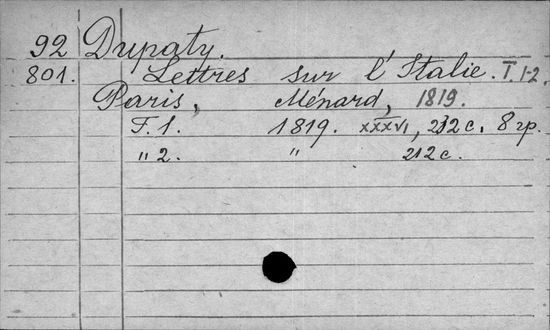 92 Dupaty.
801. Lettres sur l'Italie. T. 1-2.
Paris, Ménard, 1819.
T. 1. 1819. XXXVI, 212 c., 8 гр.
" 2. " 212 c.